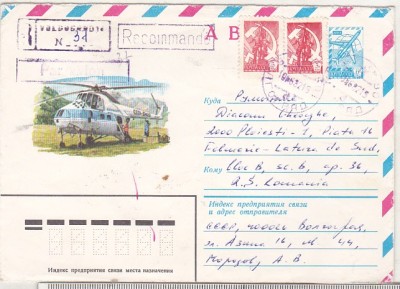 VOLGOGRAD 1
N 31
Recommandé
АВ
Куда Румыния
Diaconu Gheorghe,
2000 Ploiesti-1, Piata 16
Februarie - Latura de Sud,
Кому bloc B, sc. B, ap. 36,
R.S. Romania
Индекс предприятия связи
и адрес отправителя
СССР, 400011 Волгоград,
ул. Азизбекова 16, кв. 44,
Морозов, А. В.
Индекс предприятия связи места назначения